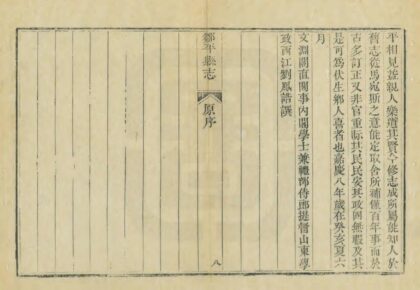 平相見並親人樂道其賢今修志成所屬能知人於
舊志從馬宛斯之意能定取舍所補僅百年事而於
古多訂正又非官重賑其民民安其政固無暇及其
是可為伏生鄉人喜者也嘉慶八年歲在癸亥夏六
月
文淵閣直閣事內閣學士兼禮部侍郎提督山東學
政西江劉鳳誥撰
鄒平縣志
原序
八